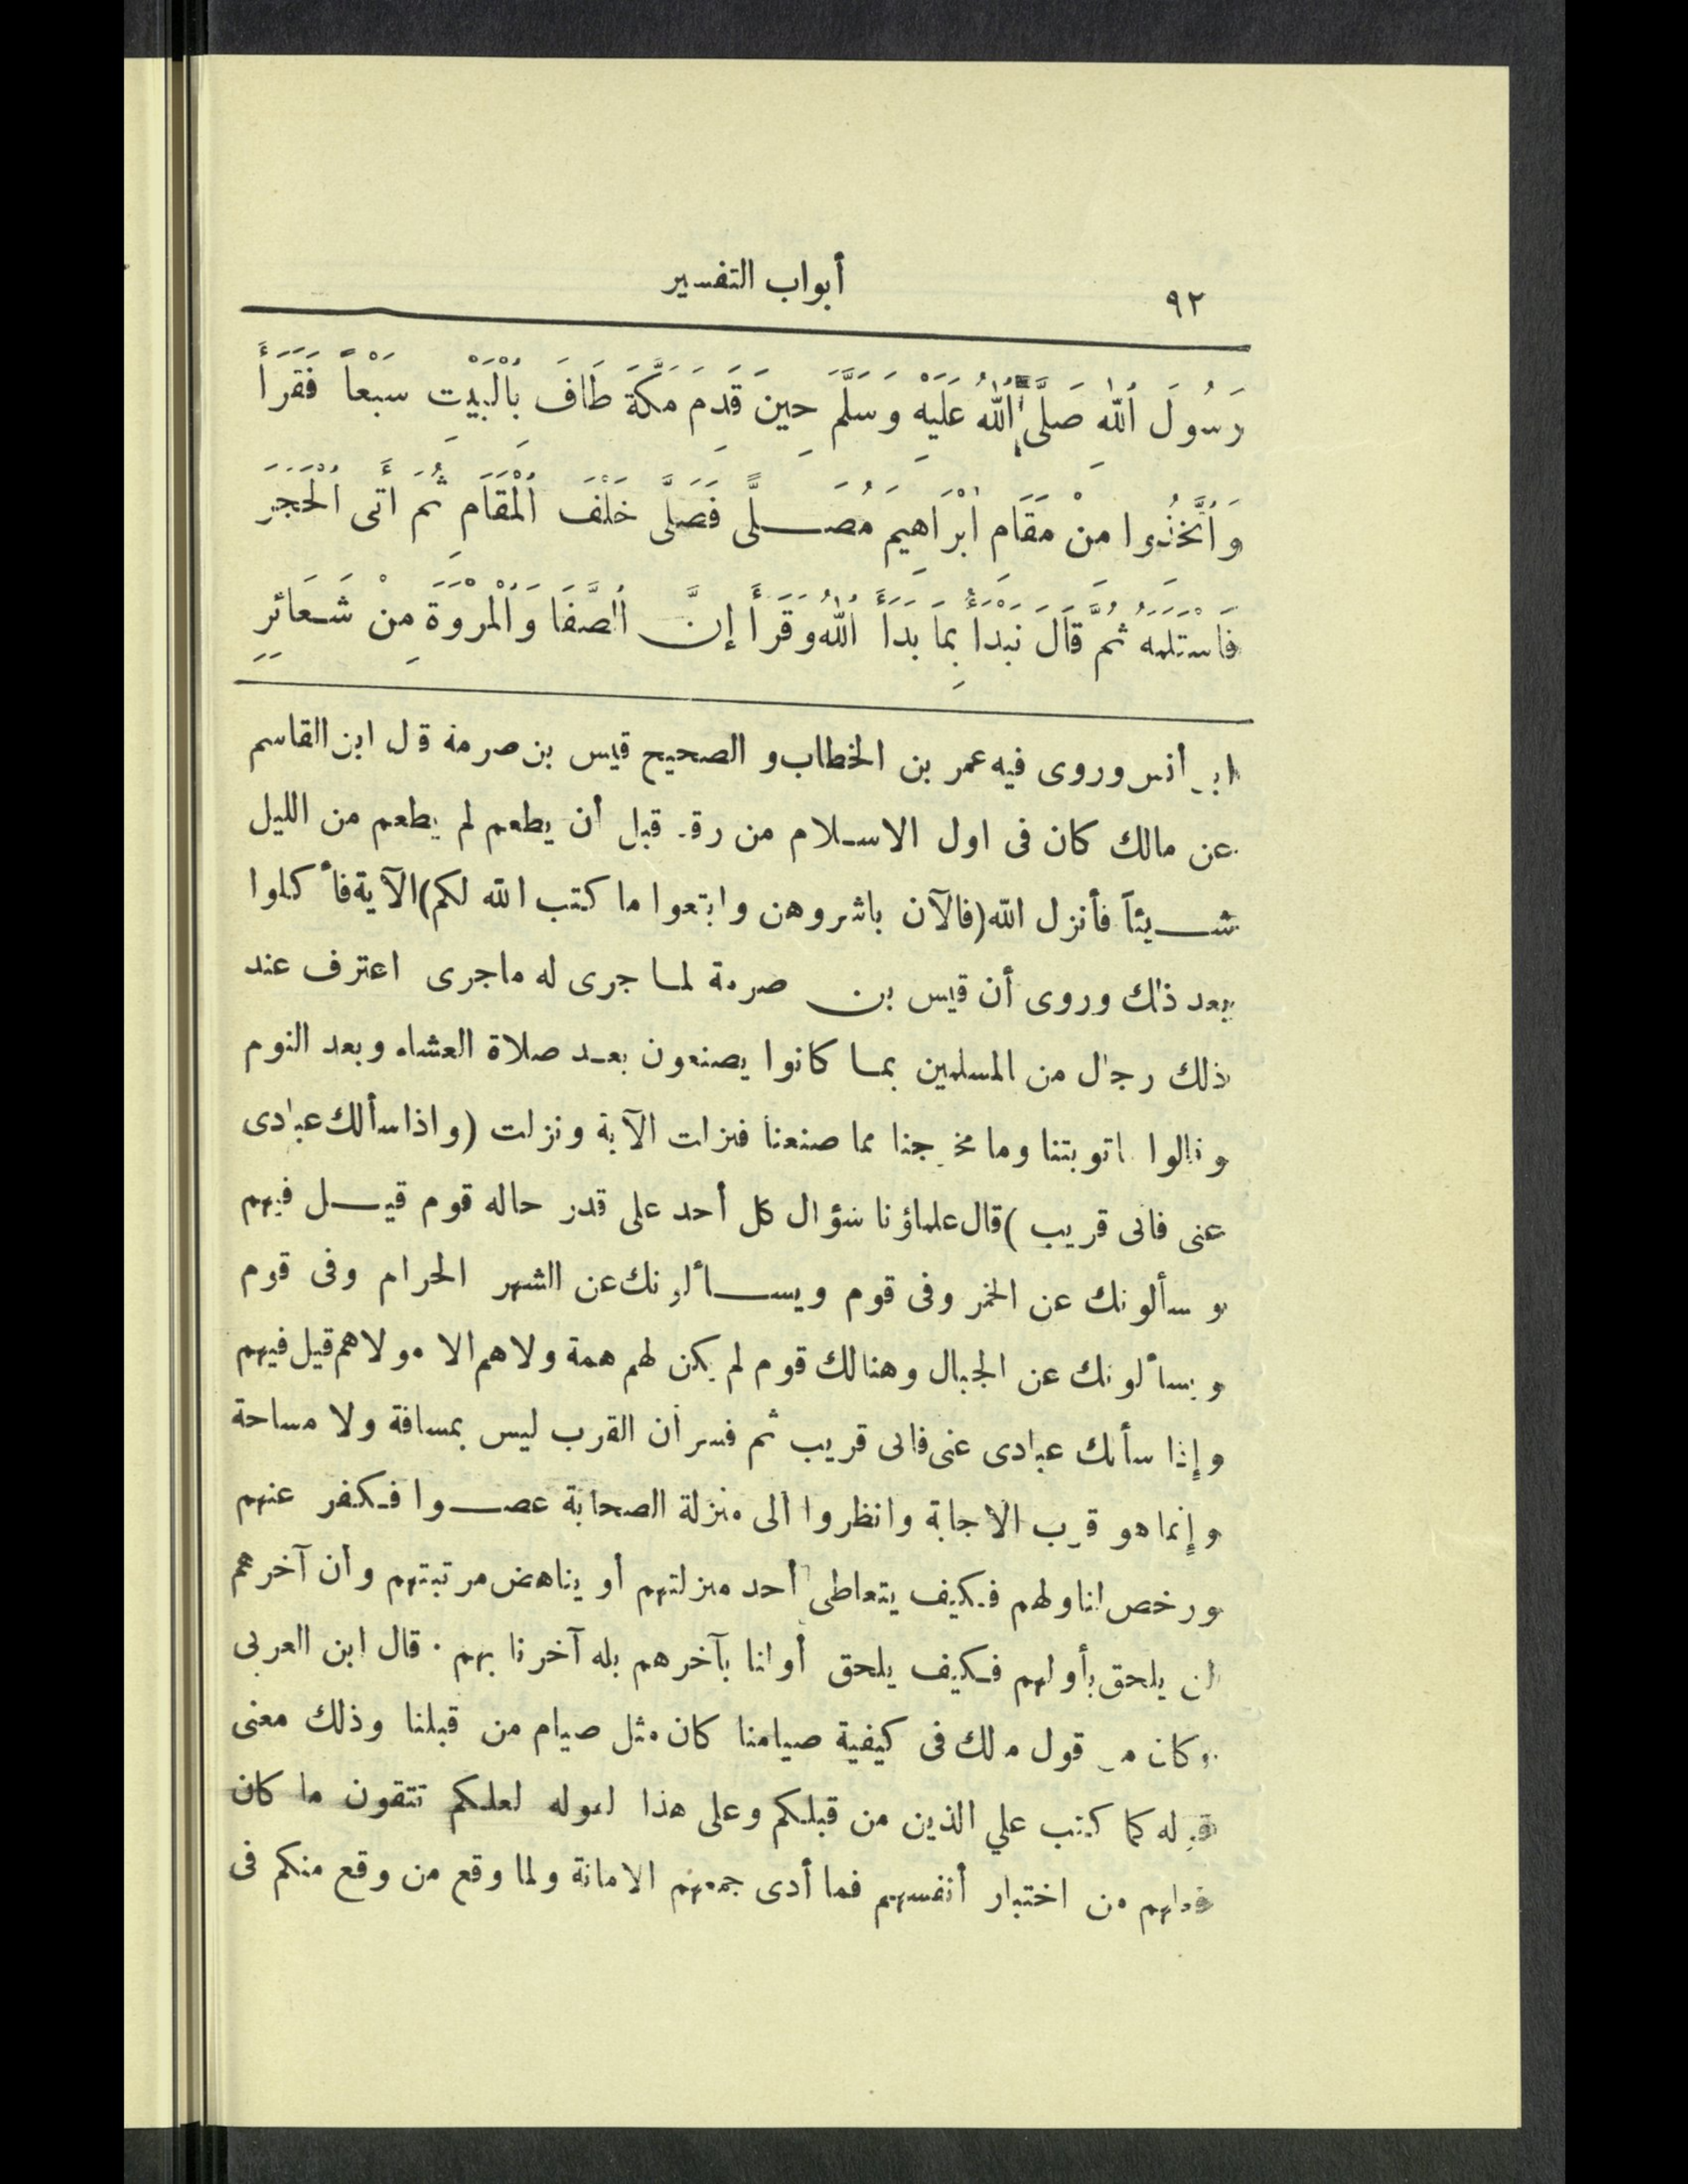 ٩٢ أبواب التفسير
رَسُولَ ٱللهِ صَلَّى ٱللهُ عَلَيْهِ وَسَلَّمَ حِينَ قَدِمَ مَكَّةَ طَافَ بِٱلْبَيْتِ سَبْعاً فَقَرَأَ
وَٱتَّخِذُوا مِنْ مَقَامِ إبْرَاهِيمَ مُصَلًّى فَصَلَّى خَلْفَ ٱلْمَقَامِ ثُمَّ أَتَى ٱلْحَجَرَ
فَاسْتَلَمَهُ ثُمَّ قَالَ نَبْدَأُ بِمَا بَدَأَ ٱللهُ وَقَرَأَ إنَّ ٱلصَّفَا وَٱلْمَرْوَةَ مِنْ شَعَائِرِ
أنس وروى فيه عمر بن الخطاب و الصحيح قيس بن صرمة قل ابن القاسم
عن مالك كان فى اول الاسلام من رقد قبل أن يطعم لم يطعم من الليل
شيئاً فأنزل الله (فالآن باشروهن وابتغوا ما كتب الله لكم) الآية فأكلوا
بعد ذلك وروى أن قيس بن صرمة لما جرى له ماجرى اعترف عند
ذلك رجال من المسلمين بما كانوا يصنعون بعد صلاة العشاء وبعد النوم
وقالوا ماتوبتنا وما مخرجنا مما صنعنا فنزلت الآية ونزلت (واذا سألك عبادى
عنى فانى قريب) قال علماؤنا سؤال كل أحد على قدر حاله قوم قيل فيهم
وسألونك عن الخمر وفى قوم ويسألونك عن الشهر الحرام وفى قوم
ويسألونك عن الجبال وهنالك قوم لم يكن لهم همة ولاهم الا مولاهم قيل فيهم
وإذا سألك عبادى عنى فانى قريب ثم فسر أن القرب ليس بمسافة ولا مساحة
وإنما هو قرب الاجابة وانظروا الى منزلة الصحابة عصوا فكفر عنهم
ورخص لنا ولهم فكيف يتعاطى أحد منزلتهم أو يناهض مرتبتهم وأن آخرهم
لن يلحق بأولهم فكيف يلحق أولنا بآخرهم بله آخرنا بهم. قال ابن العربى
وكان من قول مالك فى كيفية صيامنا كان مثل صيام من قبلنا وذلك معنى
قوله كما كتب علي الذين من قبلكم وعلى هذا لقوله لعلكم تتقون ما كان
من اختبار أنفسهم فما أدى جميعهم الامانة ولما وقع من وقع منكم فى